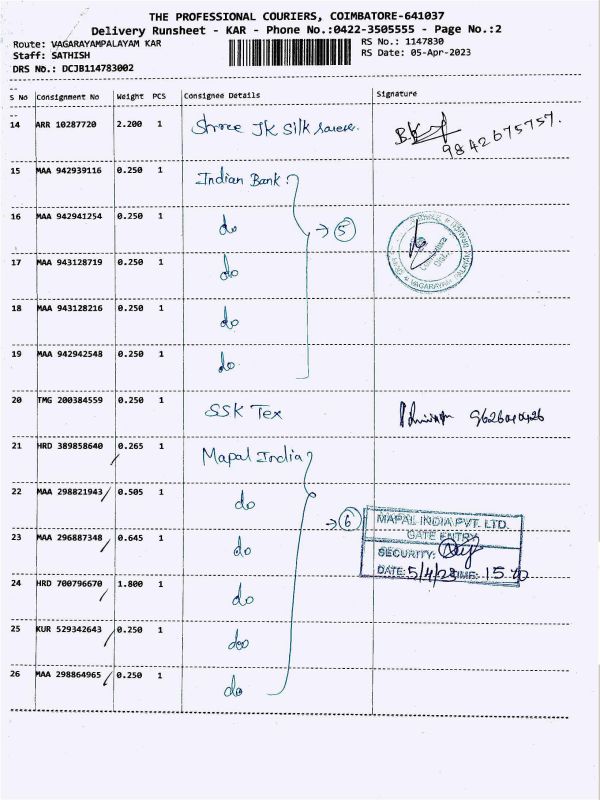 THE PROFESSIONAL COURIERS, COIMBATORE-641037
Delivery Runsheet - KAR - Phone No.:0422-3505555 - Page No.:2
Route: VAGARAYAMPALAYAM KAR
RS No.: 1147830
Staff: SATHISH
RS Date: 05-Apr-2023
DRS No.: DCJB114783002
S No Consignment No Weight PCS Consignee Details Signature
14 ARR 10287720 2.200 1 Shree JK Silk sarees. 9842675757.
15 MAA 942939116 0.250 1 Indian Bank
16 MAA 942941254 0.250 1 do → 5
17 MAA 943128719 0.250 1 do
18 MAA 943128216 0.250 1 do
19 MAA 942942548 0.250 1 do
20 TMG 200384559 0.250 1 SSK Tex
21 HRD 389858640 0.265 1 Mapal India
22 MAA 298821943 0.505 1 do → 6
MAPAL INDIA PVT. LTD.
GATE ENTRY
23 MAA 296887348 0.645 1 do
SECURITY:
DATE: 5/4/23 TIME: 15.
24 HRD 700796670 1.800 1 do
25 KUR 529342643 0.250 1 do
26 MAA 298864965 0.250 1 do